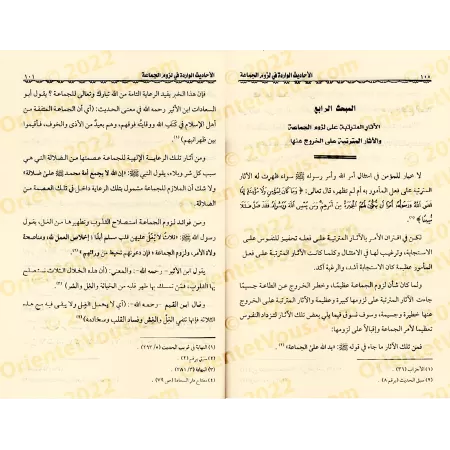 الأحاديث الواردة في لزوم الجماعة
١٠٠
المبحث الرابع
الآثار المترتبة على لزوم الجماعة
والآثار المترتبة على الخروج عنها
لا خيار للمؤمن في امتثال أمر الله وأمر رسوله ﷺ سواء ظهرت له الآثار
المترتبة على فعل المأمور به أم لم تظهر، قال تعالى: ﴿ وَمَا كَانَ لِمُؤْمِنٍ وَلَا مُؤْمِنَةٍ إِذَا
قَضَى اللَّهُ وَرَسُولُهُ أَمْرًا أَن يَكُونَ لَهُمُ الْخِيَرَةُ مِنْ أَمْرِهِمْ وَمَن يَعْصِ اللَّهَ وَرَسُولَهُ فَقَدْ ضَلَّ ضَلَالًا
مُّبِينًا ﴾(١).
لكن في اقتران الأمر بالآثار المترتبة على فعله تحفيز للنفوس على
الاستجابة، وترغيب لها في الامتثال وكلما كانت الآثار المترتبة على فعل
المأمور عظيمة كان الاستجابة أشد، والرغبة أكبر.
ولما كان شأن لزوم الجماعة عظيمًا، وخطر الخروج عن الطاعة جسيمًا
جاءت الآثار المترتبة على لزومها كبيرة وعظيمة والآثار المترتبة على الخروج
عنها خطيرة وجسيمة، وسوف نسوق فيما يلي بعض تلك الآثار لتزداد النفوس
تعظيمًا لأمر الجماعة وإقبالاً على لزومها.
فمن تلك الآثار ما جاء في قوله ﷺ: «يد الله على الجماعة»(٢).
(١) الأحزاب (٣٦).
(٢) سبق الحديث (برقم ٨).
الأحاديث الواردة في لزوم الجماعة
١٠١
فإن هذا الخبر يفيد الرعاية التامة من الله تبارك وتعالى للجماعة؟ يقول أبو
السعادات ابن الأثير رحمه الله في معنى الحديث: (أي أن الجماعة المتفقة من
أهل الإسلام في كنف الله ووقايتُه فوقهم، وهم بعيدٌ من الأذى والخوف، فأقيموا
بين ظهرانيهم)(١).
ومن آثار تلك الرعاية الإلهية للجماعة عصمتها من الضلالة التي هي
سبب كل شر وبلاء، يقول النبي ﷺ: «إن الله لا يجمع أمة محمد ﷺ على ضلالة»(٢)
ولا شك أن الملازم للجماعة مشمول بتلك الرعاية داخل في تلك العصمة من
الضلالة.
ومن فوائد لزوم الجماعة استصلاح القلوب وتطهيرها من الغل، يقول
رسول الله ﷺ: «ثلاثٌ لا يُغلُّ عليهن قلب مسلم أبدًا: إخلاص العمل لله، ومناصحة
ولاة الأمر، ولزوم الجماعة؛ فإن دعوتهم تحيط من ورائهم».
يقول ابن الأثير - رحمه الله -: والمعنى: (أن هذه الخلال الثلاث تستصلح
بها القلوب، فمن تمسك بها طهر قلبه من الخيانة والغل والشر)(٣).
وقال ابن القيم - رحمه الله -: (أي لا يحمل الغل ولا يبقى فيه مع هذه
الثلاثة فإنها تنفي الغل والغش وفساد القلب وسخائمه)(٤).
(١) النهاية في غريب الحديث (٥/ ٢٩٣).
(٣) النهاية (٣/ ٣٨١).
(٤) مفتاح دار السعادة (ص ٧٩).